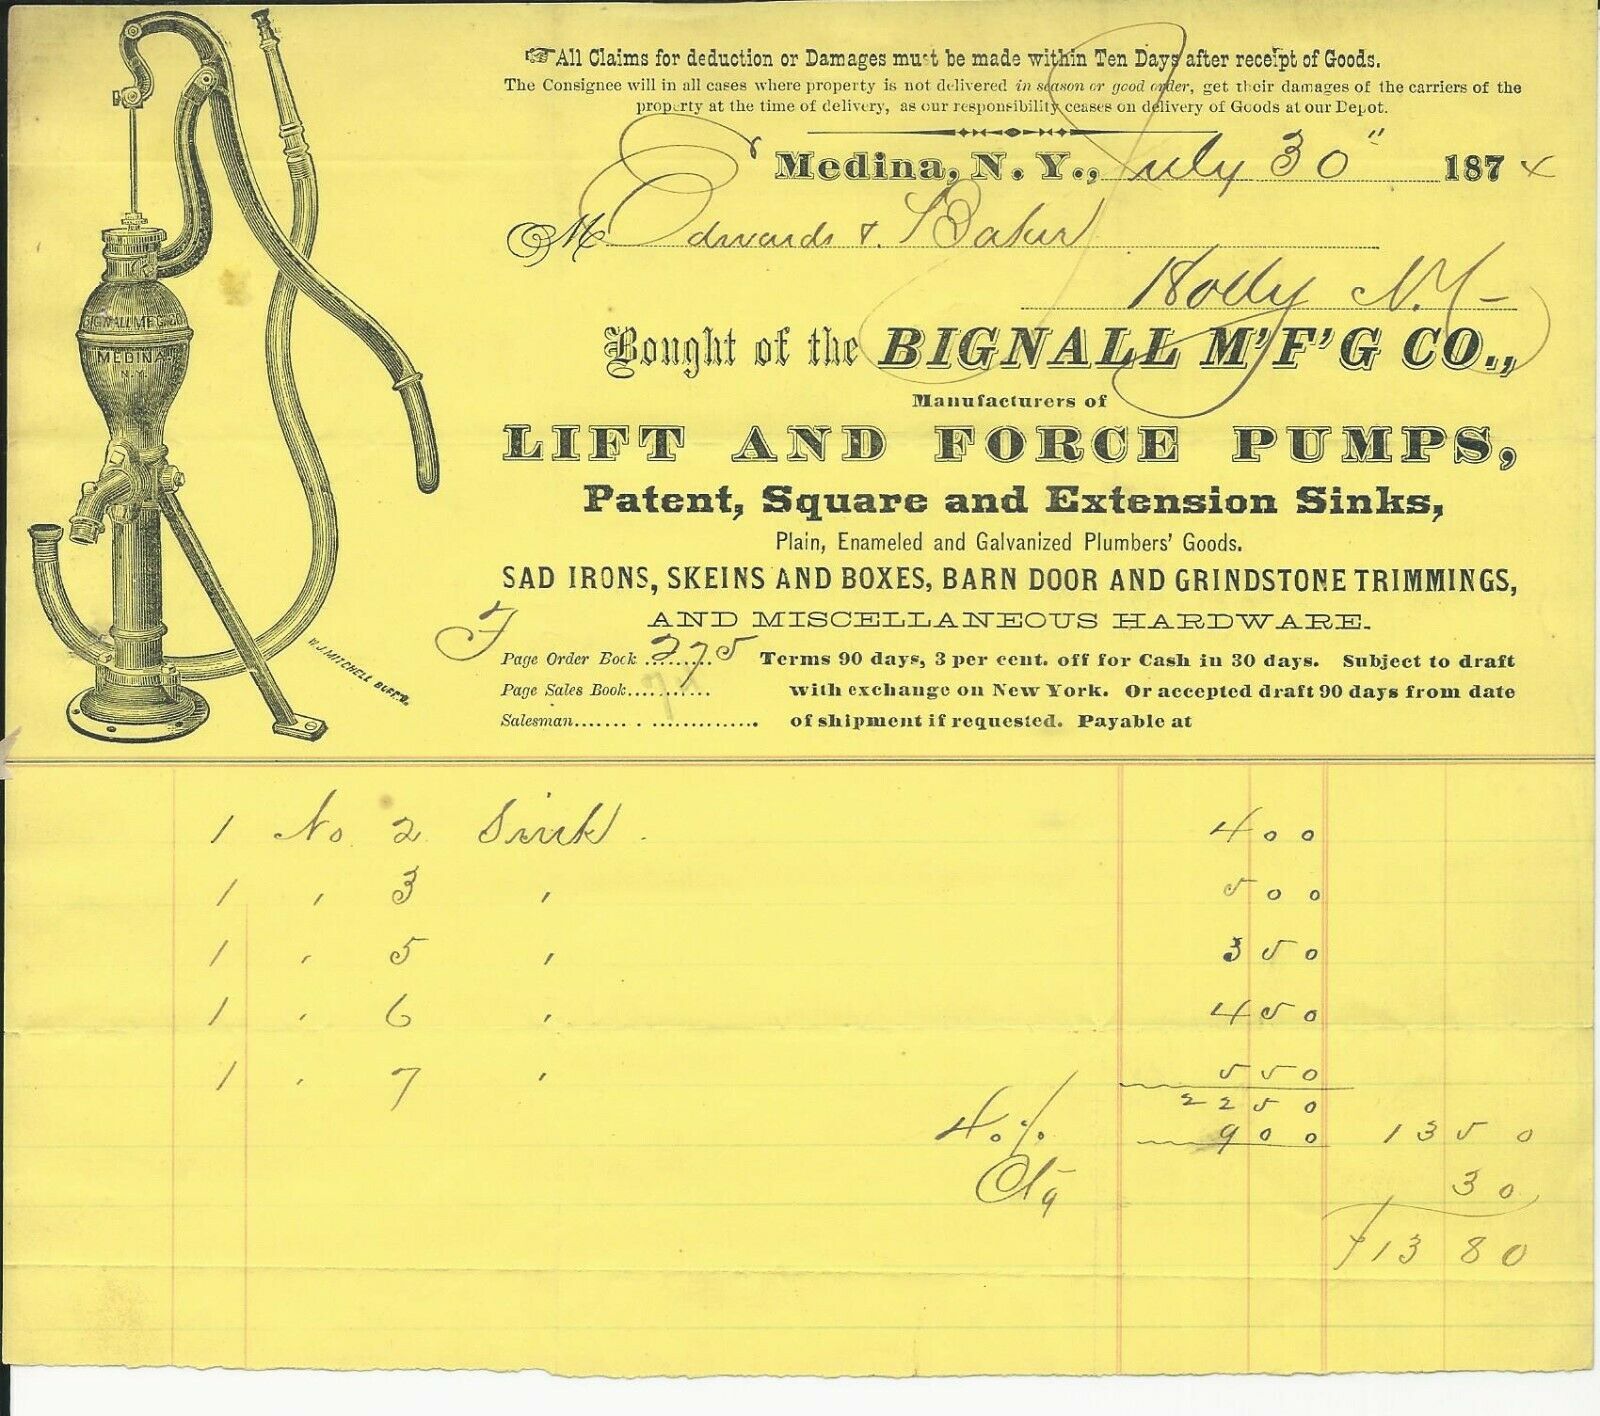 ☞ All Claims for deduction or Damages must be made within Ten Days after receipt of Goods.
The Consignee will in all cases where property is not delivered in season or good order, get their damages of the carriers of the
property at the time of delivery, as our responsibility ceases on delivery of Goods at our Depot.
Medina, N. Y., July 30" 1874
M Edwards & Baker
Holly N.Y.
Bought of the BIGNALL M'F'G CO.,
Manufacturers of
LIFT AND FORCE PUMPS,
Patent, Square and Extension Sinks,
Plain, Enameled and Galvanized Plumbers' Goods.
SAD IRONS, SKEINS AND BOXES, BARN DOOR AND GRINDSTONE TRIMMINGS,
AND MISCELLANEOUS HARDWARE.
F
Page Order Book 275 Terms 90 days, 3 per cent. off for Cash in 30 days. Subject to draft
Page Sales Book with exchange on New York. Or accepted draft 90 days from date
Salesman of shipment if requested. Payable at
BIGNALL MFG. CO.
MEDINA
N.Y.
W.J. MITCHELL BUFF'O.
1 No. 2 Sink 4 00
1 " 3 " 5 00
1 " 5 " 3 50
1 " 6 " 4 50
1 " 7 " 5 50
22 50
40% 9 00 13 50
Ctg 30
13 80